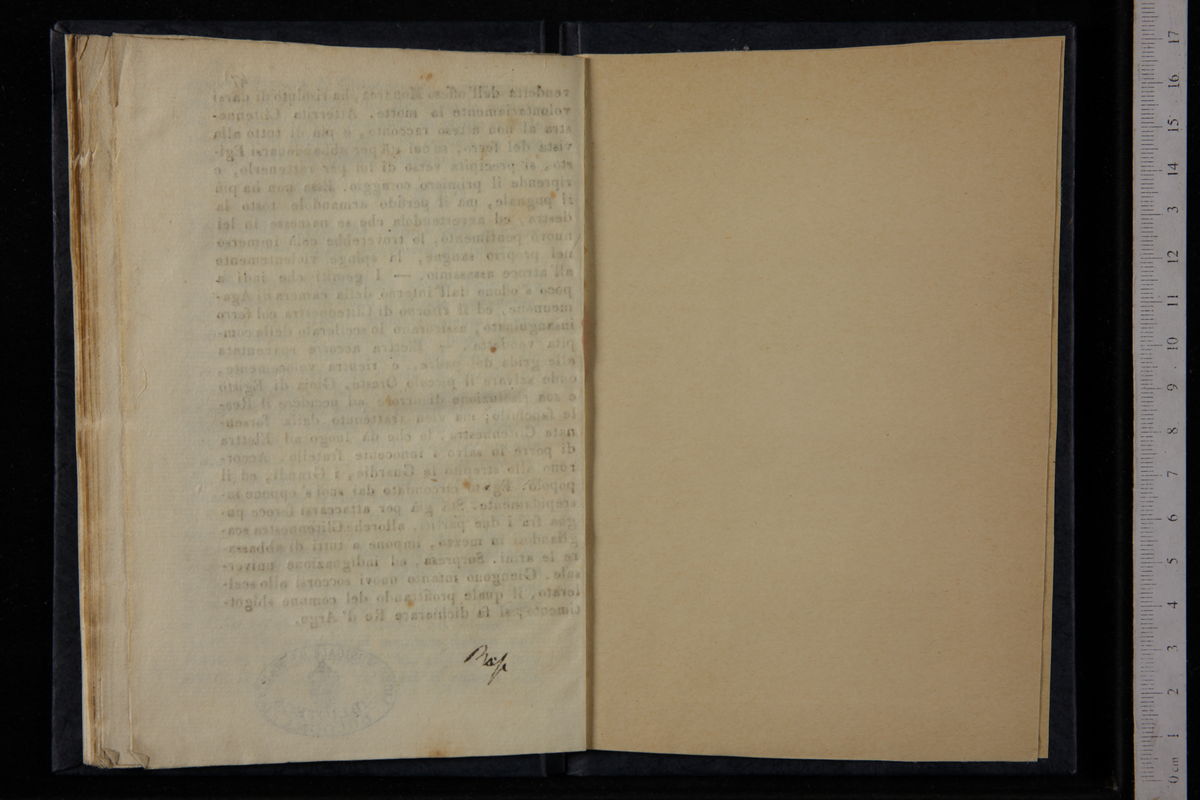 47
vendetta dell'offeso Monarca, ha risoluto di darsi
volontariamente la morte. Atterrita Clitenne-
stra al non atteso racconto, e più di tutto alla
vista del ferro, su cui già per abbandonarsi Egi-
sto, si precipita verso di lui per rattenerlo, e
riprende il primiero coraggio. Essa non ha più
il pugnale, ma il perfido armandole tosto la
destra, ed avvertendola che se nascesse in lei
nuovo pentimento, lo troverebbe colà immerso
nel proprio sangue, la spinge violentemente
all'atroce assassinio. — I gemiti che indi a
poco s'odono dall'interno della camera di Aga-
mennone, ed il ritorno di Clitennestra col ferro
insanguinato, assicurano lo scellerato della com-
pita vendetta. Elettra accorre spaventata
alle grida del padre, e rientra velocemente,
onde salvare il piccolo Oreste. Gioia di Egisto
e sua risoluzione di correre ad uccidere il Rea-
le fanciullo; ma vien trattenuto dalla forsen-
nata Clitennestra, lo che dà luogo ad Elettra
di porre in salvo l'innocente fratello. Accor-
rono allo strepito le Guardie, i Grandi, ed il
popolo. Egisto circondato dai suoi s'oppone in-
trepidamente. Stà già per attaccarsi feroce pu-
gna fra i due partiti, allorchè Clitennestra sca-
gliandosi in mezzo, impone a tutti di abbassa-
re le armi. Sorpresa, ed indignazione univer-
sale. Giungono intanto nuovi soccorsi allo scel-
lerato, il quale profittando del comune sbigot-
timento, si fa dichiarare Re d'Argo.
0 cm 1 2 3 4 5 6 7 8 9 10 11 12 3 14 15 16 17